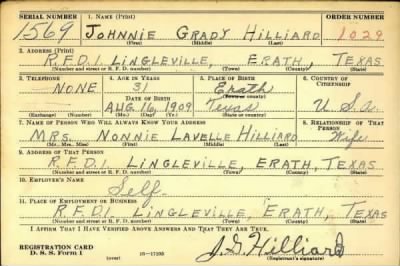 SERIAL NUMBER 1. NAME (Print) ORDER NUMBER
1569 JOHNNIE GRADY HILLIARD 1029
(First) (Middle) (Last)
2. ADDRESS (Print)
R.F.D.1. LINGLEVILLE, ERATH, TEXAS
(Number and street or R. F. D. number) (Town) (County) (State)
3. TELEPHONE 4. AGE IN YEARS 5. PLACE OF BIRTH 6. COUNTRY OF CITIZENSHIP
NONE 31 Erath
DATE OF BIRTH (Town or county)
AUG. 16, 1909 Texas U.S.A.
(Exchange) (Number) (Mo.) (Day) (Yr.) (State or country)
7. NAME OF PERSON WHO WILL ALWAYS KNOW YOUR ADDRESS 8. RELATIONSHIP OF THAT PERSON
MRS. NONNIE LAVELLE HILLIARD Wife
(Mr., Mrs., Miss) (First) (Middle) (Last)
9. ADDRESS OF THAT PERSON
R.F.D.1. LINGLEVILLE, ERATH, TEXAS
(Number and street or R. F. D. number) (Town) (County) (State)
10. EMPLOYER'S NAME
Self
11. PLACE OF EMPLOYMENT OR BUSINESS
R.F.D.1. LINGLEVILLE, ERATH, TEXAS
(Number and street or R. F. D. number) (Town) (County) (State)
I AFFIRM THAT I HAVE VERIFIED ABOVE ANSWERS AND THAT THEY ARE TRUE.
REGISTRATION CARD
D. S. S. Form 1 (over) 16-17105 J.G. Hilliard
(Registrant's signature)